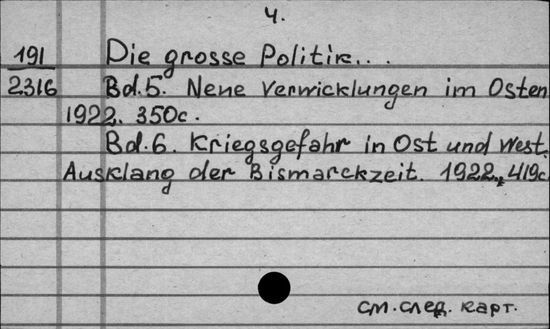 4.
191 Die grosse Politik...
2316 Bd.5. Neue Verwicklungen im Osten
1922. 350c.
Bd.6. Kriegsgefahr in Ost und West.
Ausklang der Bismarckzeit. 1922, 419c
см. след. карт.